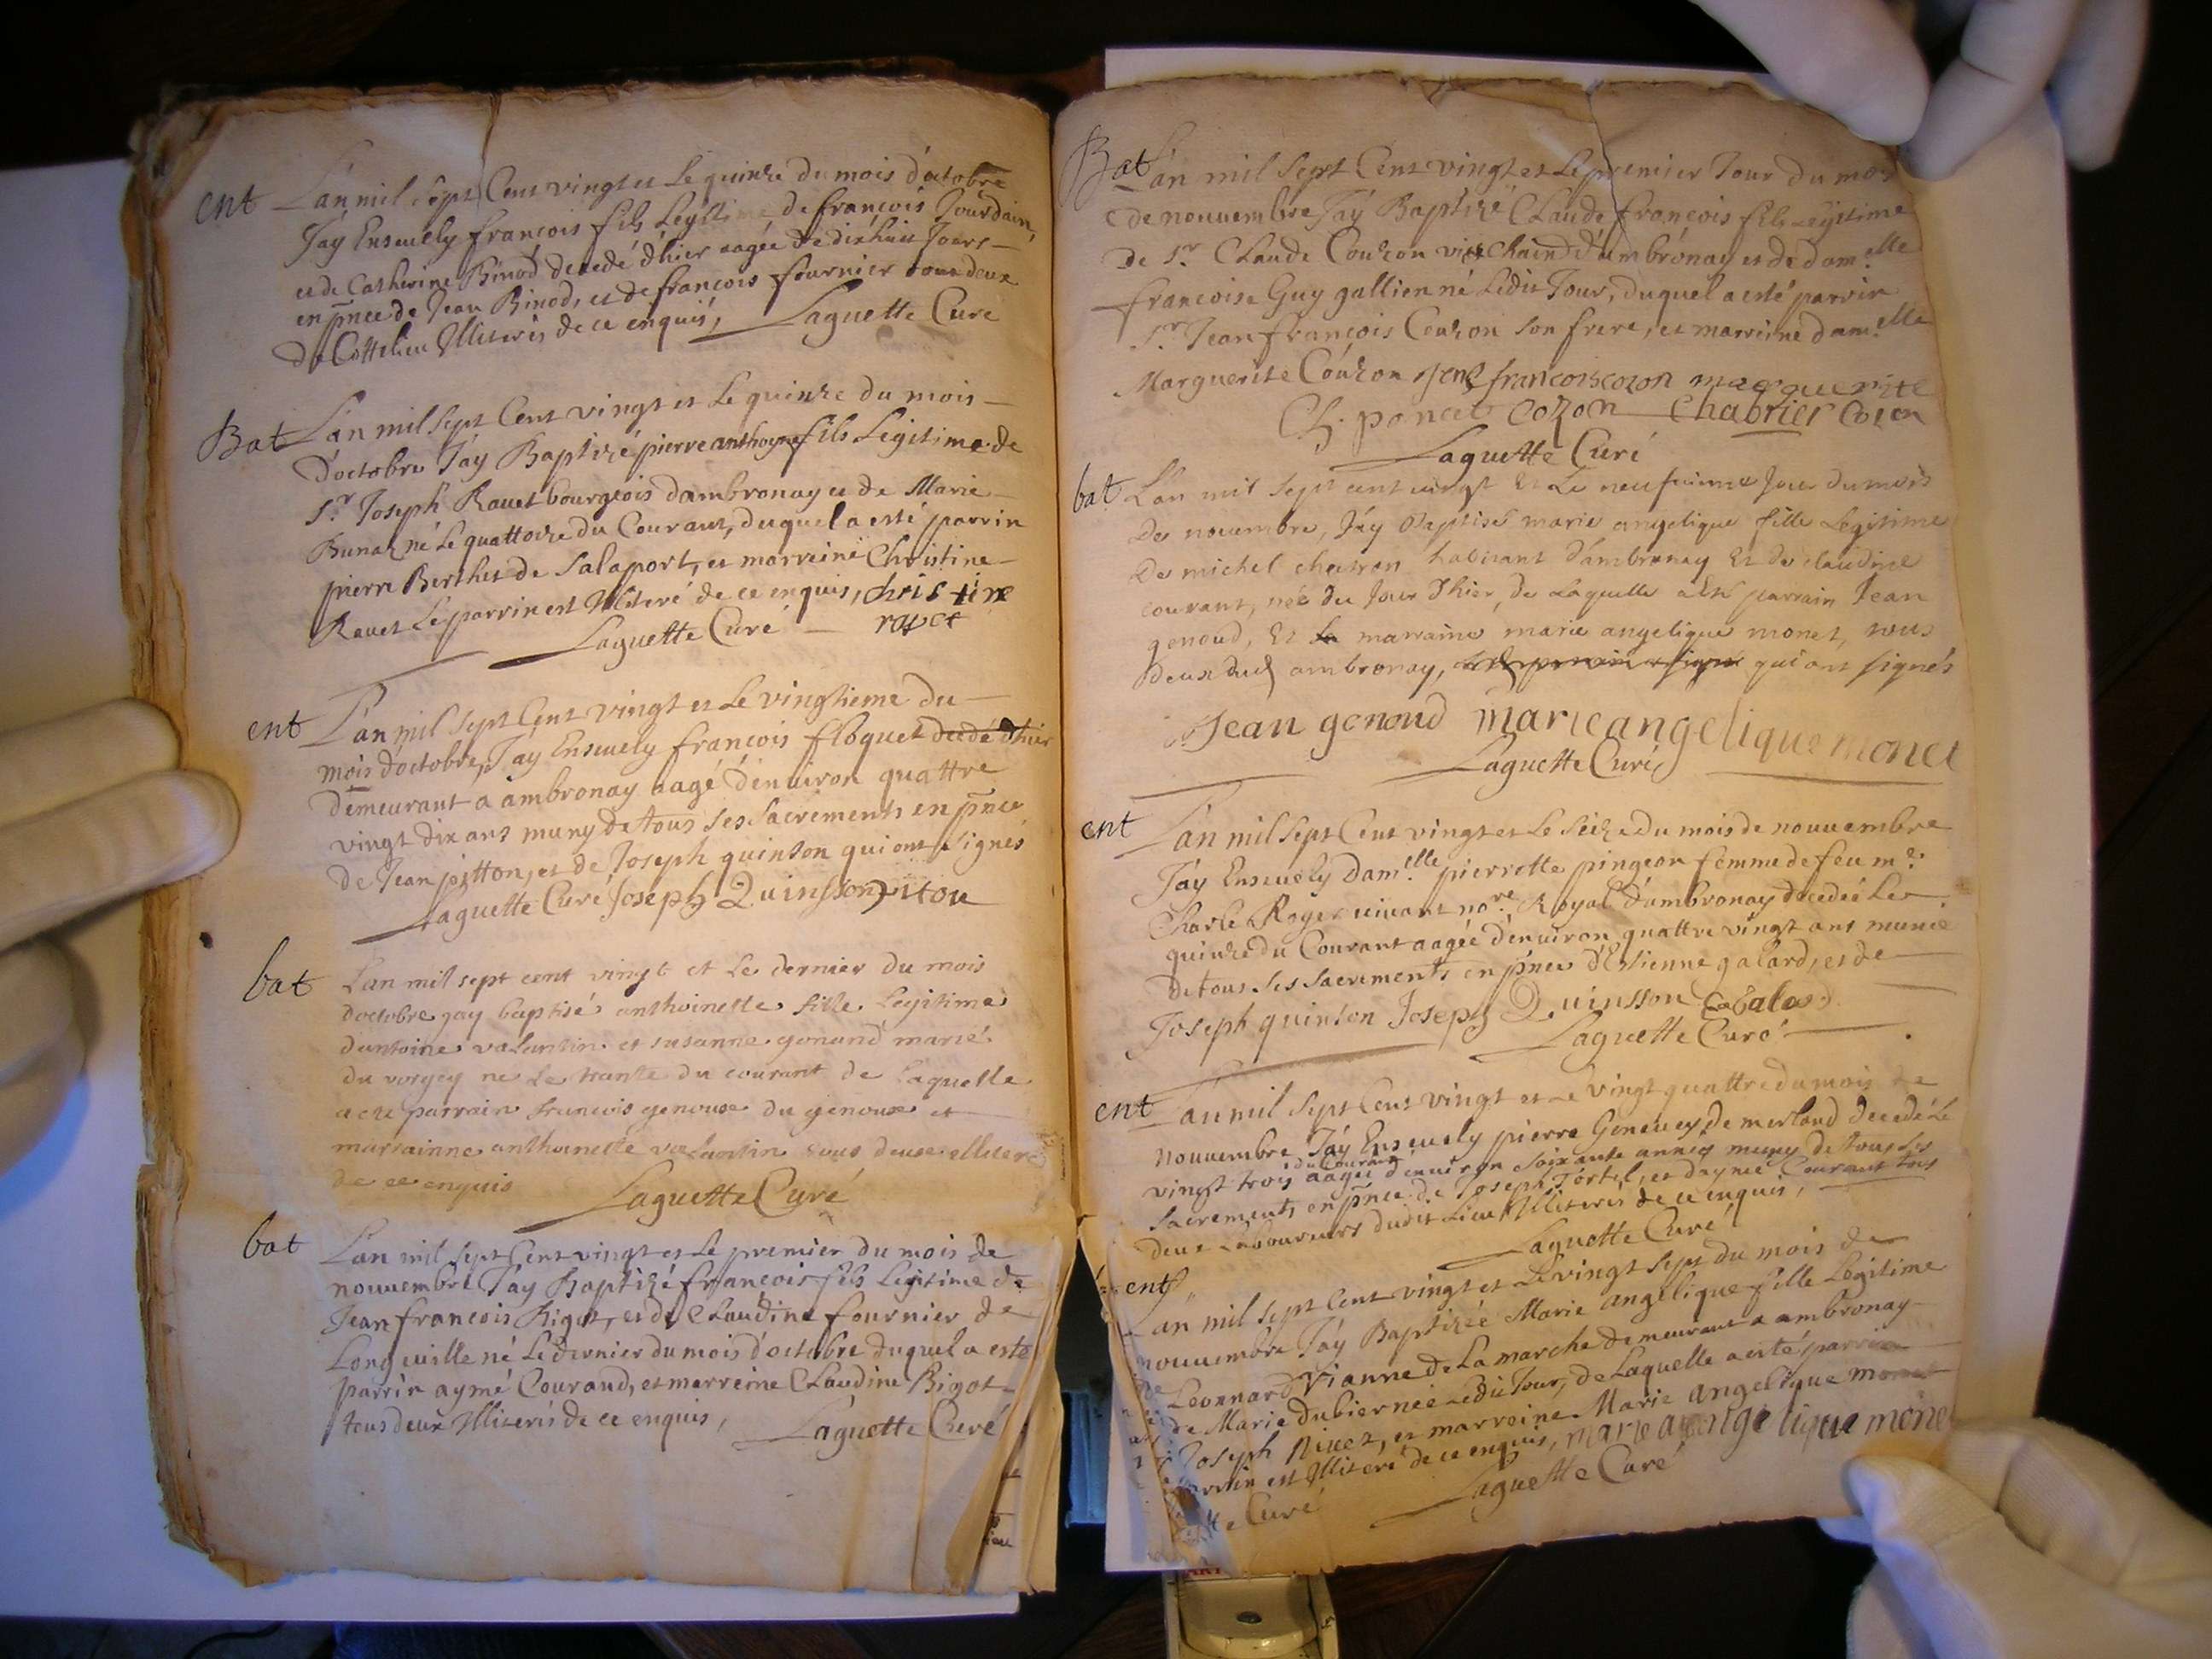 ent L'an mil sept Cent vingt et Le quinze du mois d'octobre
Jay Ensevely francois fils Legitime de francois Jourdain,
et de Catherine Binod decedé d'hier aagée de dixhuit Jours
en pnce de Jean Binod, et de francois fournier tous deux
de Cottelieu Illiterés de ce enquis, Laguette Curé
Bat L'an mil sept Cent vingt et Le quinze du mois
d'octobre Jay Baptizé pierre anthoyne fils Legitime de
Sr Joseph Ravet bourgeois dambronay et de Marie
Bunaz né Le quattorze du Courant, duquel a esté parrin
pierre Berthet de Salaport, et marreine Christine
Ravet Le parrin est Illiteré de ce enquis, christine
Laguette Curé ravet
ent L'an mil sept Cent vingt et Le vingtieme du
mois d'octobre, Jay Ensevely francois floquet decedé d'hier
demeurant a ambronay aagé d'environ quattre
vingt dix ans muny de tous ses sacrements en pnce
de Jean pitton, et de Joseph quinson qui ont signés
Laguette Curé Joseph Quinsson pitou
bat L'an mil sept cent vingt et Le dernier du mois
doctobre jay baptisé anthoinette fille Legitime
dantoine valantin et susanne gonand marié
du vorgey ne Le trante du courant de Laquelle
a ete parrain francois genoux du genoux et
marrainne anthoinette valantin tous deux elliteré
de ce enquis Laguette Curé
bat L'an mil sept Cent vingt et Le premier du mois de
nouvembre Jay Baptizé francois fils Legitime de
Jean francois Bigot, et de Claudine fournier de
Longeville né Le dernier du mois d'octobre duquel a esté
parrin aymé Couraud, et marreine Claudine Bigot
tous deux Illiterés de ce enquis, Laguette Curé
Bat L'an mil sept Cent vingt et Le premier Jour du mois
de nouvembre Jay Baptizé Claude francois fils Legitime
de Sr Claude Couzon d'ambronay et de damelle
francoise Guy gallien né Ledit Jour, duquel a esté parrin
Sr Jean francois Couzon son frere, et marreine damelle
Marguerite Couzon Jene francois cozon marguerite
Ch. poncet cozon Chabrier cozon
Laguette Curé
bat L'an mil sept cent vingt Et Le neufvieme Jour du mois
De novembre, Jay Baptisé marie angelique fille Legitime
De michel habitant d'ambronay Et de claudine
courant, née du Jour D'hier, de Laquelle a Esté parrain Jean
genoud, Et la marraine marie angelique monet, tous
deux dud ambronay, qui ont signés
Jean genoud marie angelique monet
Laguette Curé
ent L'an mil sept Cent vingt et Le seize du mois de nouvembre
Jay Ensevely damelle pierrette pingeon femme de feu me
Charle Roger vivant nore Royal d'ambronay decedée Le
quinze du Courant aagée d'environ quattre vingt ans munie
de tous ses sacrements en pnce d'Estienne galard, et de
Joseph quinson Joseph Quinsson
Laguette Curé
ent L'an mil sept Cent vingt et Le vingt quattre du mois de
nouvembre Jay Ensevely pierre Genevey de merland decedé Le
vingt trois du Courant aagé d'environ soixante années muny de tous ses
sacrements en pnce de Joseph Tortel, et daymé Courant tous
deux Laboureurs dudit Lieu Illiterés de ce enquis,
Laguette Curé
ent
L'an mil sept Cent vingt et Le vingt sept du mois de
nouvembre Jay Baptizée Marie angelique fille Legitime
de Leonnard vianne de La marche demeurant a ambronay
de Marie dubier née Ledit Jour, de Laquelle a esté parrin
Joseph Nivet, et marreine Marie angelique monet
parrin est Illiteré de ce enquis, marie angelique monet
Curé Laguette Curé